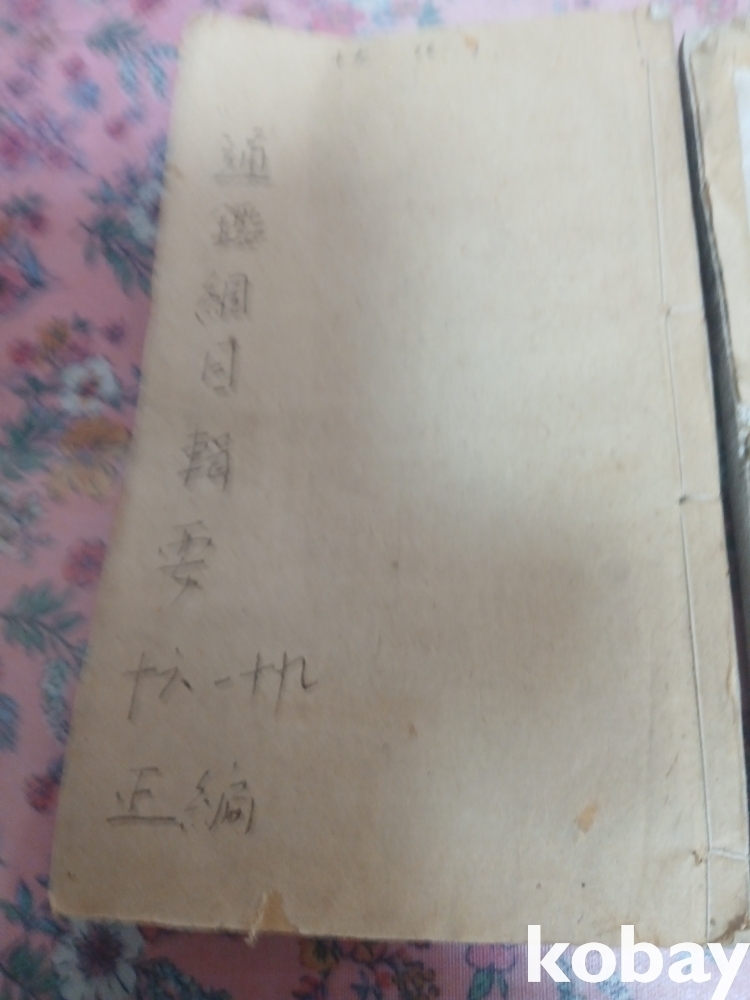 通鑑綱目輯要
十六-十九
正編
kobay